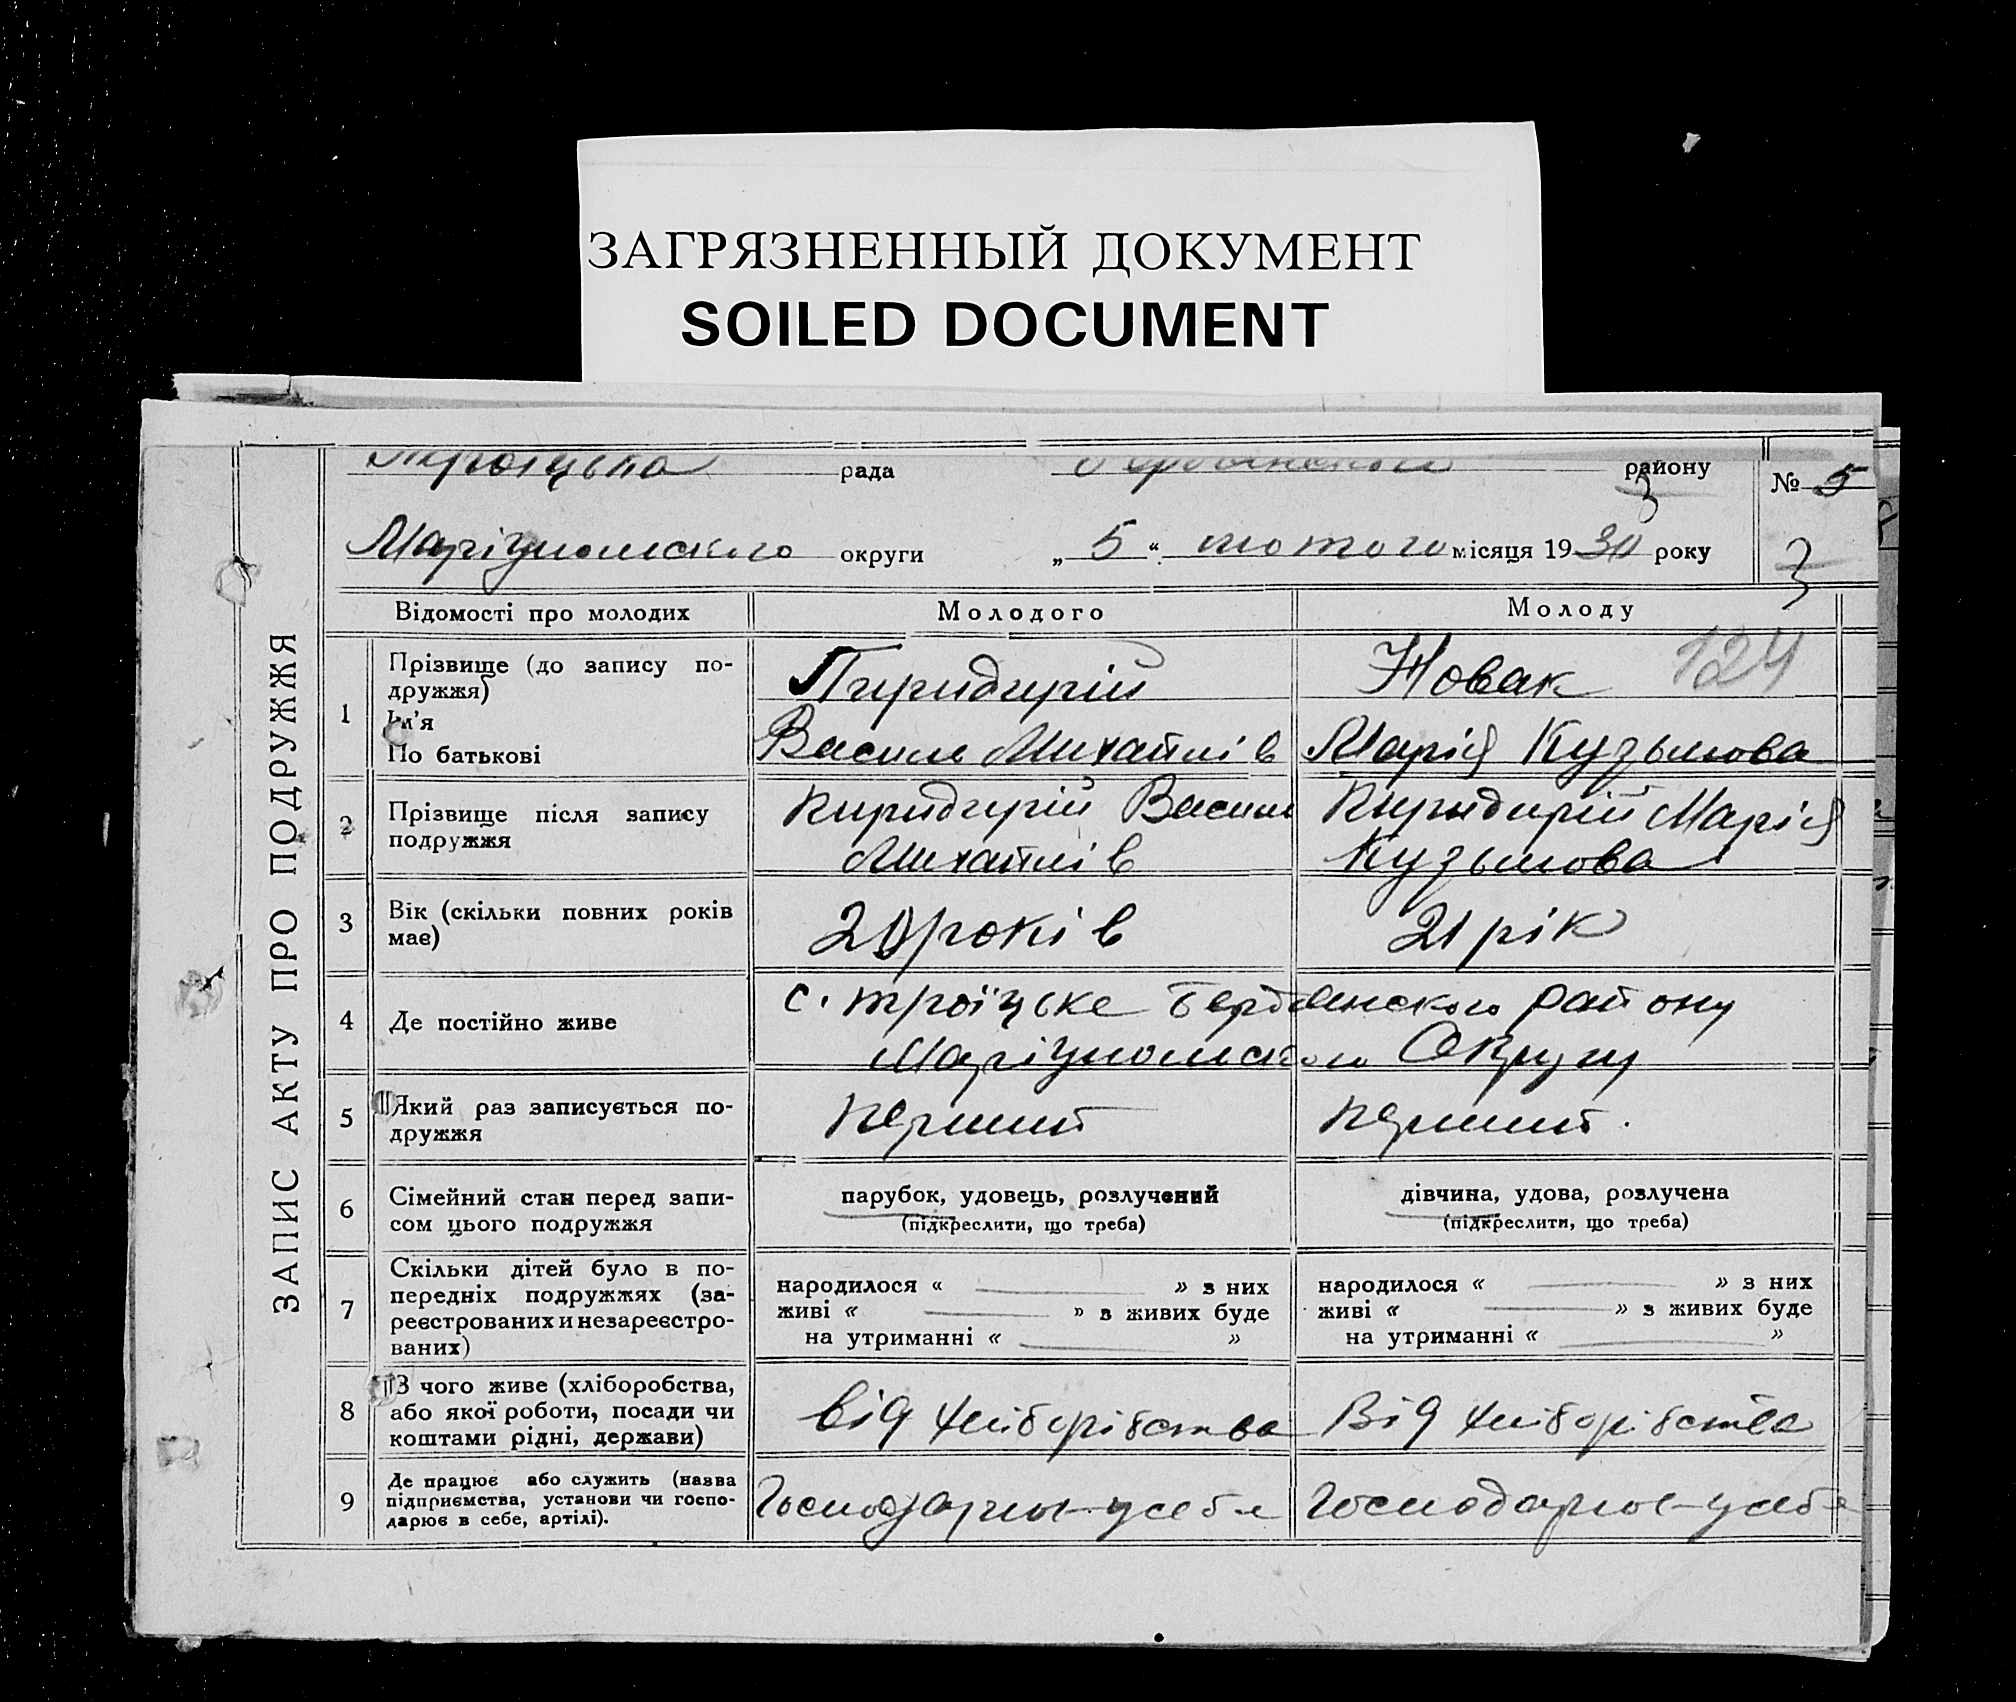 ЗАГРЯЗНЕННЫЙ ДОКУМЕНТ
SOILED DOCUMENT
ЗАПИС АКТУ ПРО ПОДРУЖЖЯ
Троіцька рада району № 5
3
Маріупольского округи „ 5 “ лютого місяця 1930 року
3
Відомості про молодих Молодого Молоду
124
1 Прізвище (до запису по-
дружжя)
Ім'я
По батькові
Новак
Василь Михайлів Марія Кузьмова
2 Прізвище після запису
подружжя
Василь
Михайлів
Марія
Кузьмова
3 Вік (скільки повних років
має)
років 21 рік
4 Де постійно живе
с. троїцьке Бердянского району
Маріупольского Округи
5 Який раз записується по-
дружжя
Перший Перший.
6 Сімейний стан перед запи-
сом цього подружжя
парубок, удовець, розлучений
(підкреслити, що треба)
дівчина, удова, розлучена
(підкреслити, що треба)
7 Скільки дітей було в по-
передніх подружжях (за-
реєстрованих и незареєстро-
ваних)
народилося « » з них
живі « » з живих буде
на утриманні « »
народилося « » з них
живі « » з живих буде
на утриманні « »
8 З чого живе (хліборобства,
або якої роботи, посади чи
коштами рідні, держави)
від хліборібства Від хліборібства
9 Де працює або служить (назва
підприємства, установи чи госпо-
дарює в себе, артілі).
Господарює у себе Господарює у себе